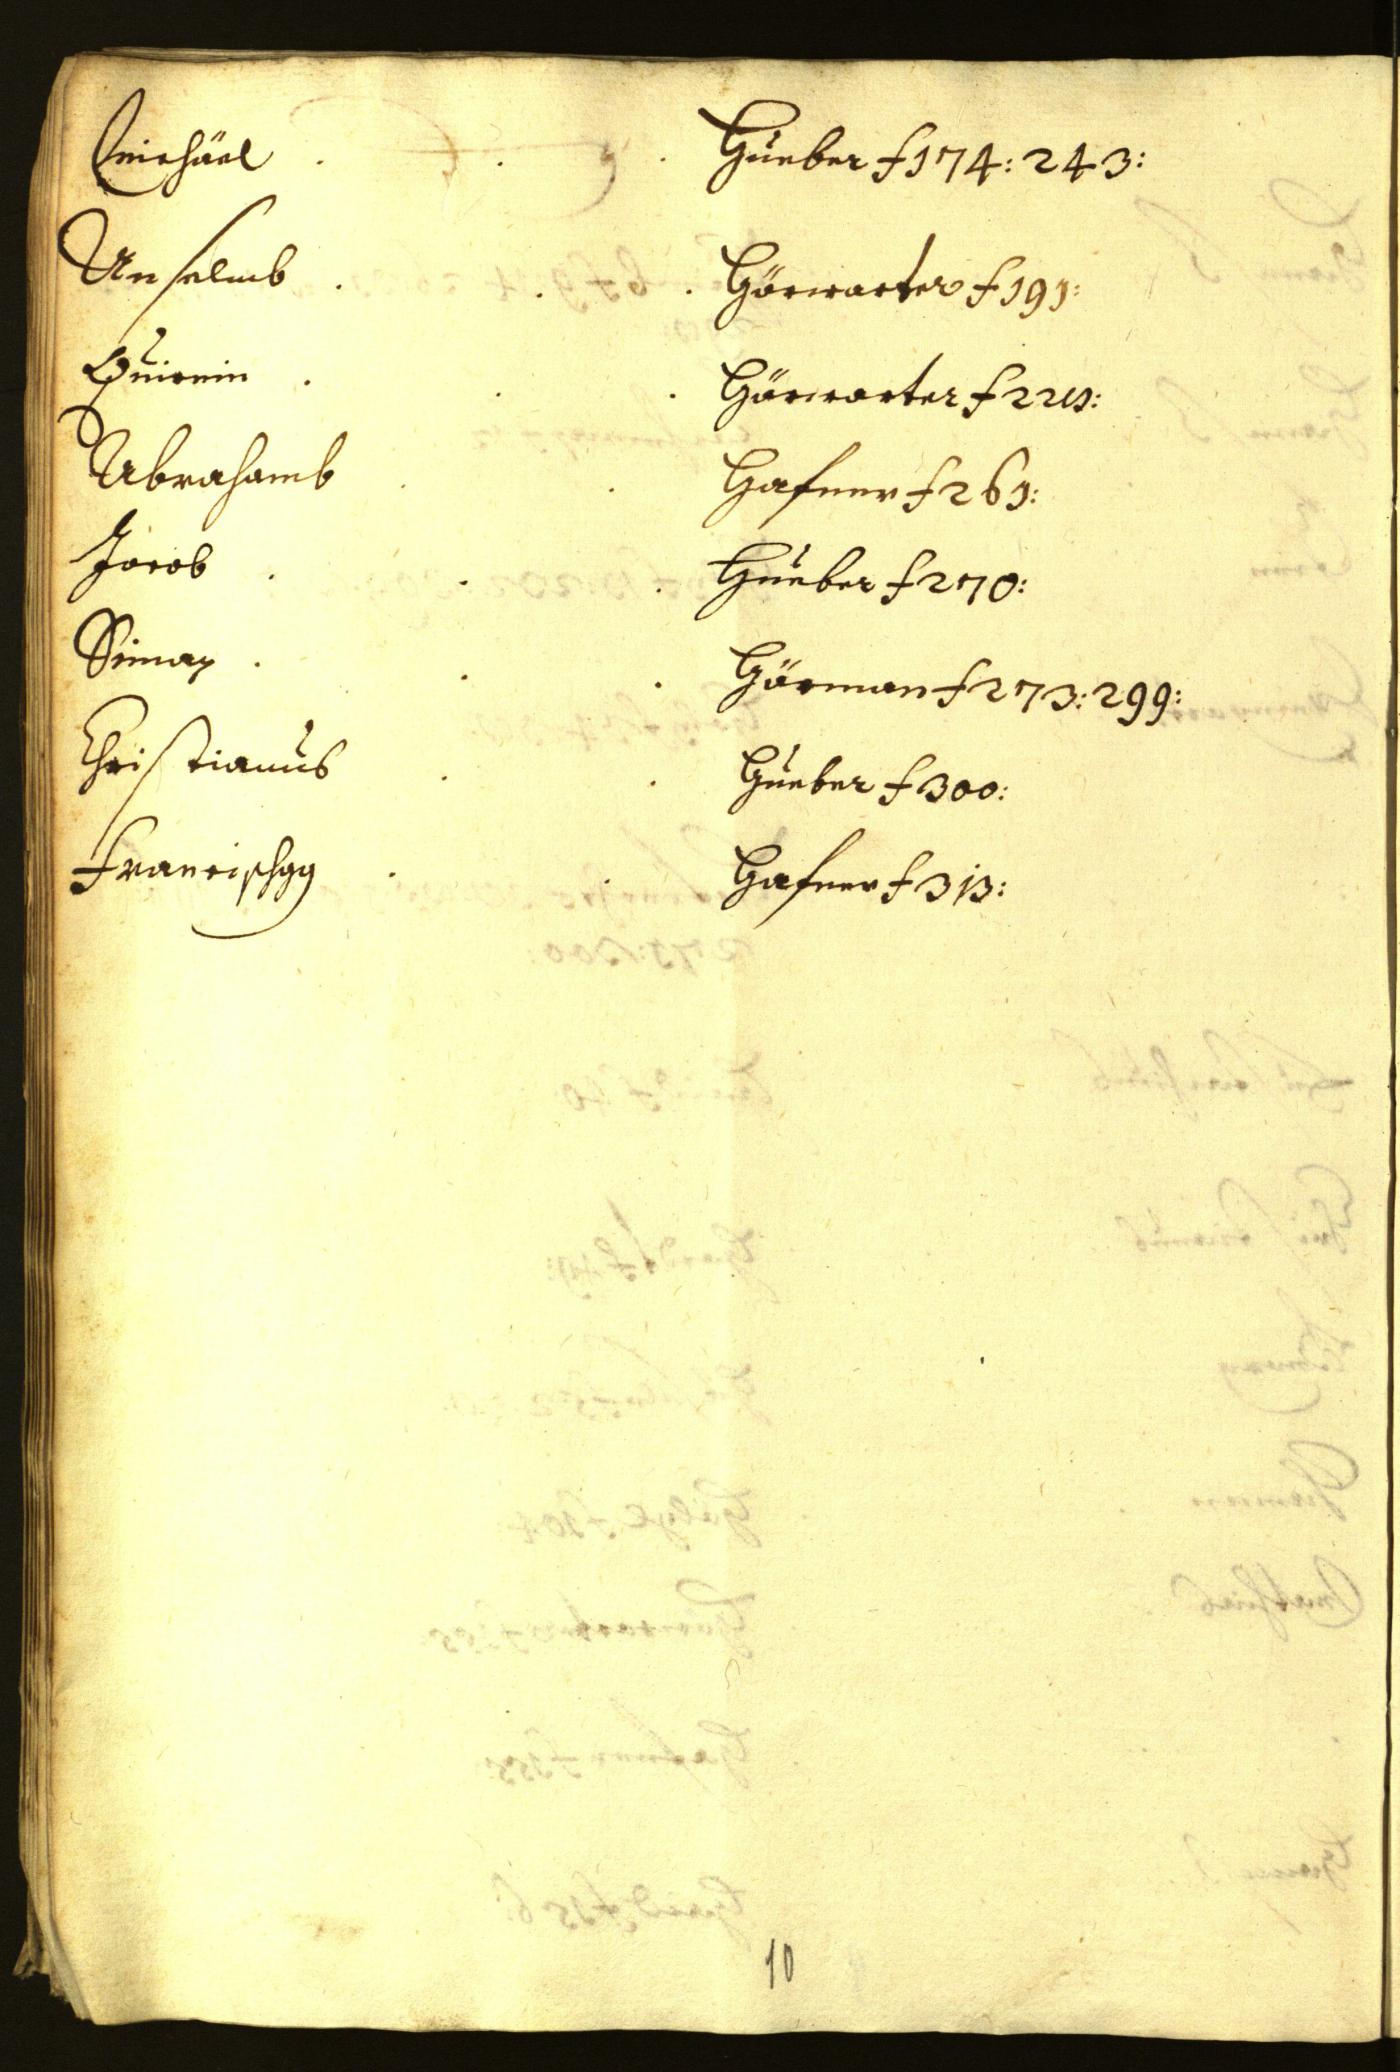 Michäel . . . Hueber f 174: 243:
Anselmb . . . Hörwarter f 191:
Quirein . . . Hörwarter f
Abrahamb . . Hafner f 261:
Jacob . . . Hueber f 270:
Simon . . . Hörman f 273: 299:
Christianus . . Hueber f 300:
Francischgg . . Hafner f 313:
10